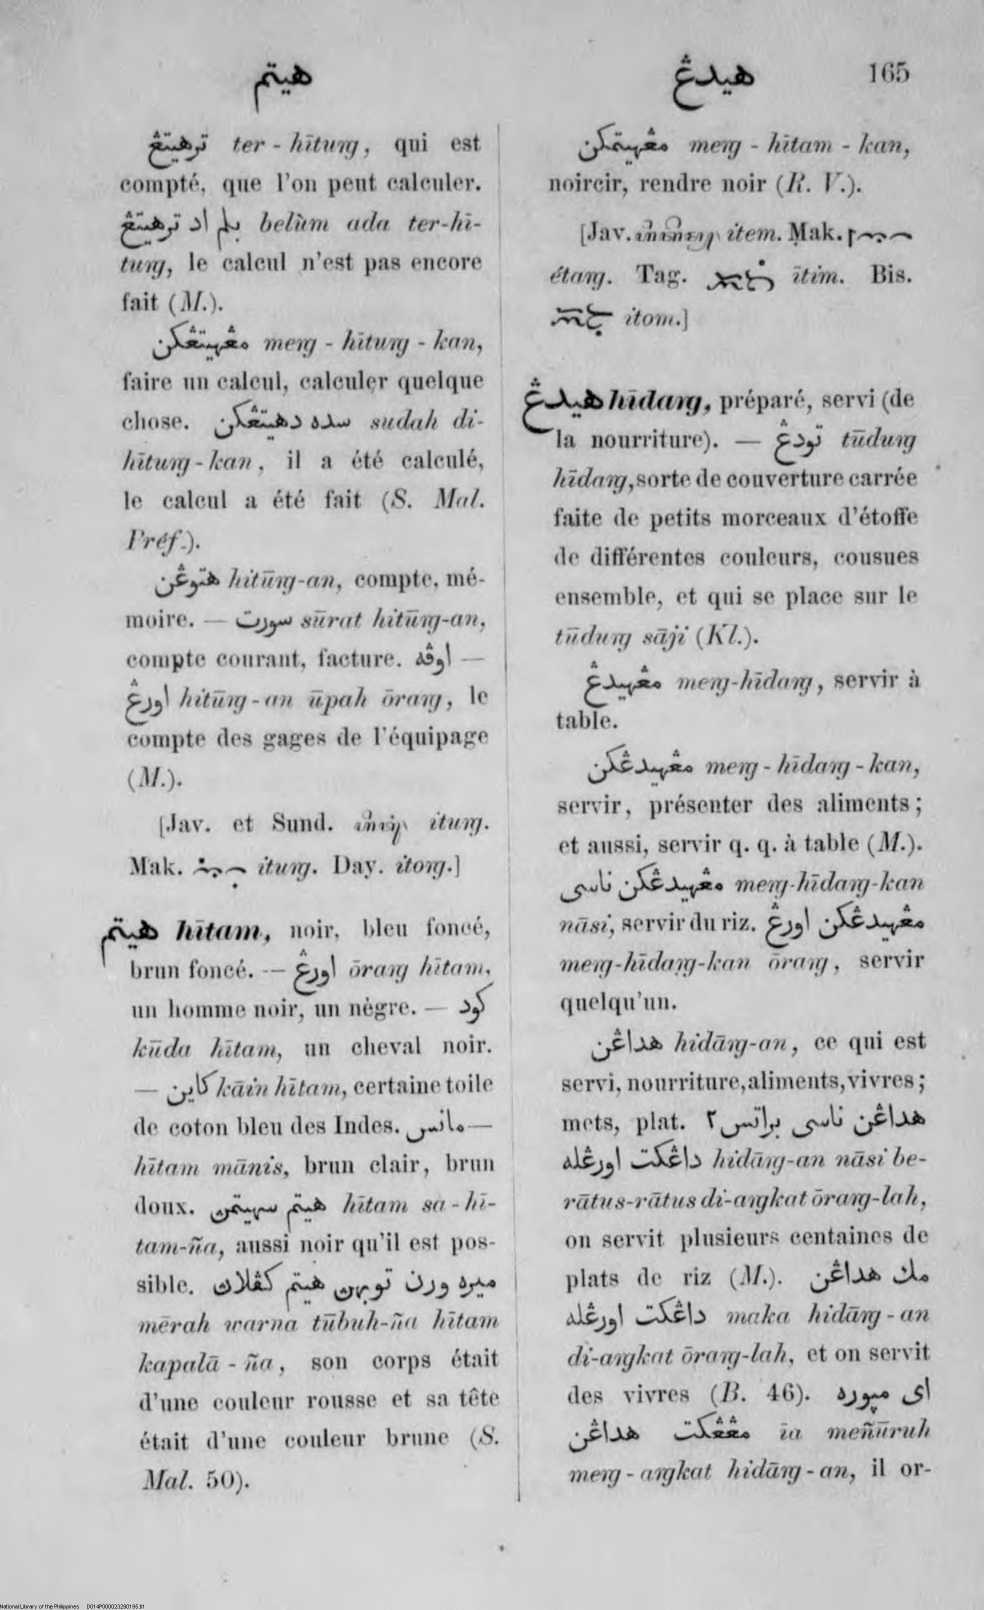 هيتم
هيدڠ
165
ترهيتڠ ter - hītuꞑg, qui est
compté, que l'on peut calculer.
بلم اد ترهيتڠ belùm ada ter-hī-
tuꞑg, le calcul n'est pas encore
fait (M.).
مڠهيتڠكن meꞑg - hītuꞑg - kan,
faire un calcul, calculer quelque
chose. سده دهيتڠكن sudah di-
hītuꞑg-kan, il a été calculé,
le calcul a été fait (S. Mal.
Préf.).
هتوڠن hitūꞑg-an, compte, mé-
moire. — سورت sūrat hitūꞑg-an,
compte courant, facture. اوڤه —
اورڠ hitūꞑg-an ūpah ōraꞑg, le
compte des gages de l'équipage
(M.).
[Jav. et Sund. ituꞑg.
Mak. ituꞑg. Day. itoꞑg.]
هيتم hītam, noir, bleu foncé,
brun foncé. — اورڠ ōraꞑg hītam,
un homme noir, un nègre. — كود
kūda hītam, un cheval noir.
— كاين kāin hītam, certaine toile
de coton bleu des Indes. مانس—
hītam mānis, brun clair, brun
doux. هيتم سهيتمن hītam sa-hī-
tam-ña, aussi noir qu'il est pos-
sible. ميره ورن توبهن هيتم كڤلاڽ
mērah warna tūbuh-ña hītam
kapalā - ña, son corps était
d'une couleur rousse et sa tête
était d'une couleur brune (S.
Mal. 50).
مڠهيتمكن meꞑg - hītam - kan,
noircir, rendre noir (R. V.).
[Jav. item. Mak.
étaꞑg. Tag. ītim. Bis.
itom.]
هيدڠ hīdaꞑg, préparé, servi (de
la nourriture). — تودڠ tūduꞑg
hīdaꞑg, sorte de couverture carrée
faite de petits morceaux d'étoffe
de différentes couleurs, cousues
ensemble, et qui se place sur le
tūduꞑg sāji (Kl.).
مڠهيدڠ meꞑg-hīdaꞑg, servir à
table.
مڠهيدڠكن meꞑg - hīdaꞑg - kan,
servir, présenter des aliments;
et aussi, servir q. q. à table (M.).
مڠهيدڠكن ناسى meꞑg-hīdaꞑg-kan
nāsi, servir du riz. مڠهيدڠكن اورڠ
meꞑg-hīdaꞑg-kan ōraꞑg, servir
quelqu'un.
هداڠن hidāꞑg-an, ce qui est
servi, nourriture, aliments, vivres;
mets, plat. هداڠن ناسى براتس٢
داڠكت اورڠله hidāꞑg-an nāsi be-
rātus-rātus di-aꞑgkat ōraꞑg-lah,
on servit plusieurs centaines de
plats de riz (M.). مك هداڠن
داڠكت اورڠله maka hidāꞑg - an
di-aꞑgkat ōraꞑg-lah, et on servit
des vivres (B. 46). اى ميوره
مڠڠكت هداڠن īa meñūruh
meꞑg - aꞑgkat hidāꞑg - an, il or-
National Library of the Philippines